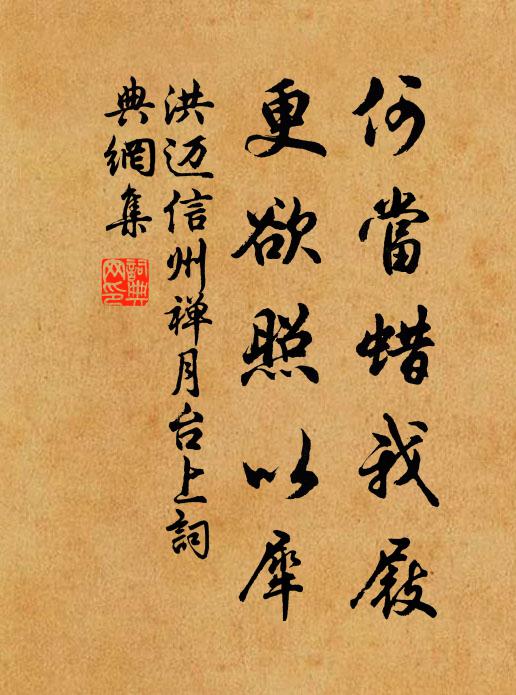 何當蜡我屐
更欲照以犀
洪迈信州禅月台上詞
典網集
詞典網印